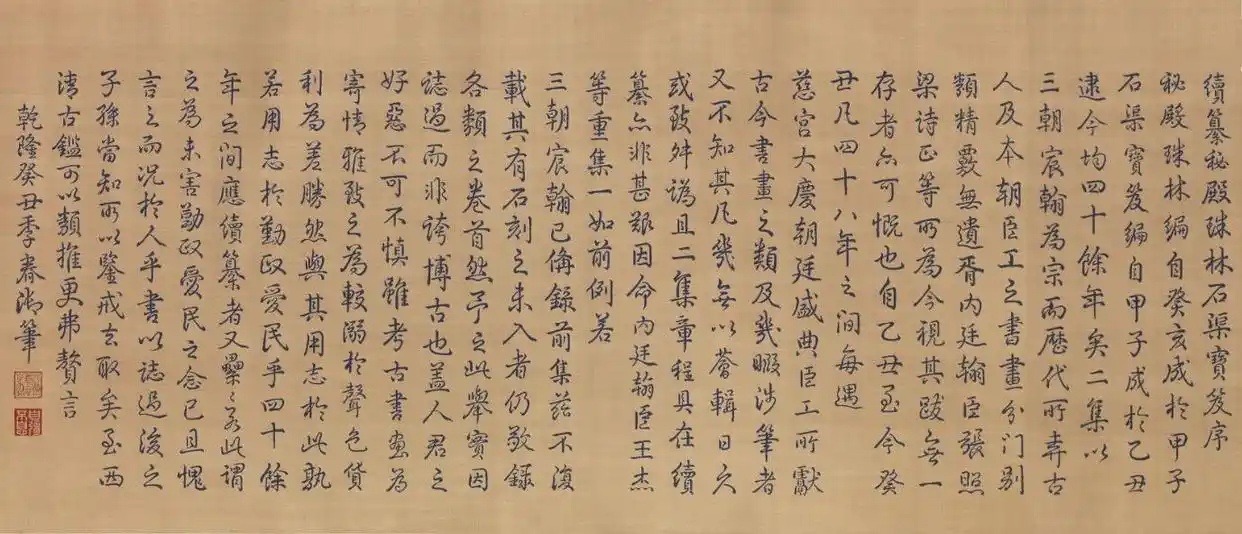 續纂秘殿珠林石渠寶笈序
秘殿珠林編自癸亥成於甲子
石渠寶笈編自甲子成於乙丑
逮今均四十餘年矣二集以
三朝宸翰為宗而歷代所弆古
人及本朝臣工之書畫分門別
類精覈無遺胥內廷翰臣張照
梁詩正等所為今視其跋無一
存者亦可慨也自乙丑至今癸
丑凡四十八年之間每遇
慈宮大慶朝廷盛典臣工所獻
古今書畫之類及幾暇涉筆者
又不知其凡幾無以薈輯日久
或致舛譌且二集章程具在續
纂亦非甚艱因命內廷翰臣王杰
等重集一如前例若
三朝宸翰已備錄前集茲不復
載其有石刻之未入者仍敬錄
各類之卷首然予之此舉實因
誌過而非誇博古也盖人君之
好惡不可不慎雖考古書畫為
寄情雅致之為較溺於聲色貨
利為差勝然與其用志於此孰
若用志於勤政愛民乎四十餘
年之間應續纂者又纍纍若此謂
之為未害勤政愛民之念已且愧
言之而況於人乎書以誌過後之
子孫當知所以鑒戒去取矣至西
清古鑑可以類推更弗贅言
乾隆癸丑季春御筆